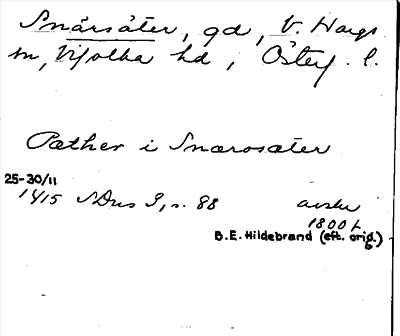 Snårsäter, gd, V. Hargs
sn, Vifolka hd, Österg. l.
Pæther i Snærosæter
25-30/11
1415 SDns 3, s. 88
avskr
1800 t.
B.E. Hildebrand (eft. orig.)